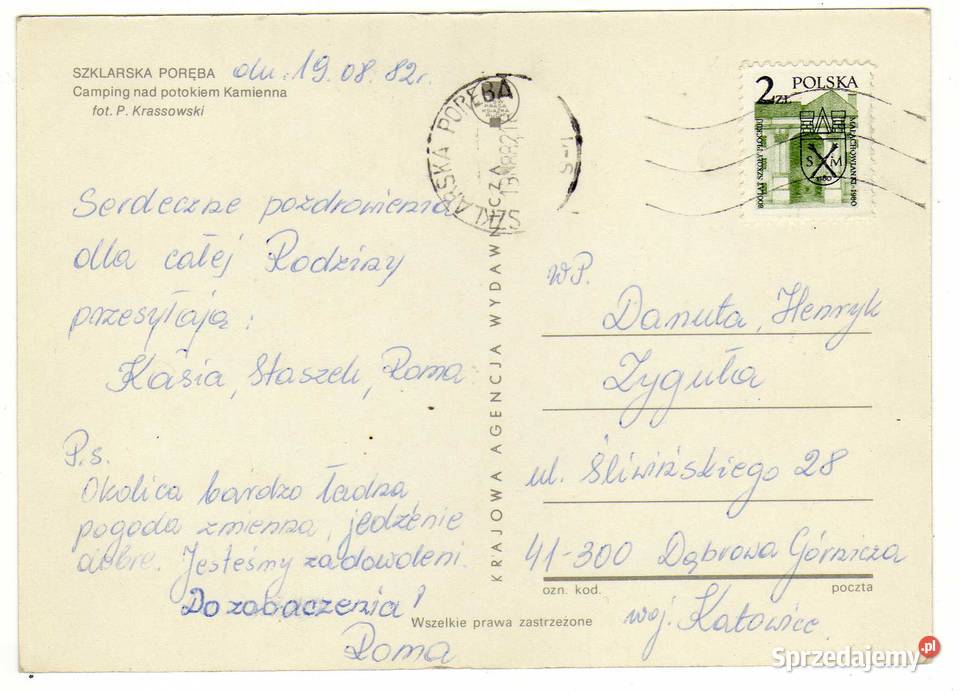 SZKLARSKA PORĘBA
Camping nad potokiem Kamienna
fot. P. Krassowski
dn. 19.08.82r.
Serdeczne pozdrowienia
dla całej Rodziny
przesyłają:
Kasia, Staszek, Roma
P.s.
Okolica bardzo ładna,
pogoda zmienna, jedzenie
dobre. Jesteśmy zadowoleni.
Do zobaczenia!
Roma
KRAJOWA AGENCJA WYDAWNICZA
SZKLARSKA PORĘBA
2 ZŁ
POLSKA
800 LAT SZKOŁY PŁOCKIEJ
MAŁACHOWIANKI-1980
S M
1180
WP.
Danuta, Henryk
Zyguła
ul. Śliwińskiego 28
41-300 Dąbrowa Górnicza
ozn. kod. poczta
woj. Katowice.
Wszelkie prawa zastrzeżone
Sprzedajemy.pl